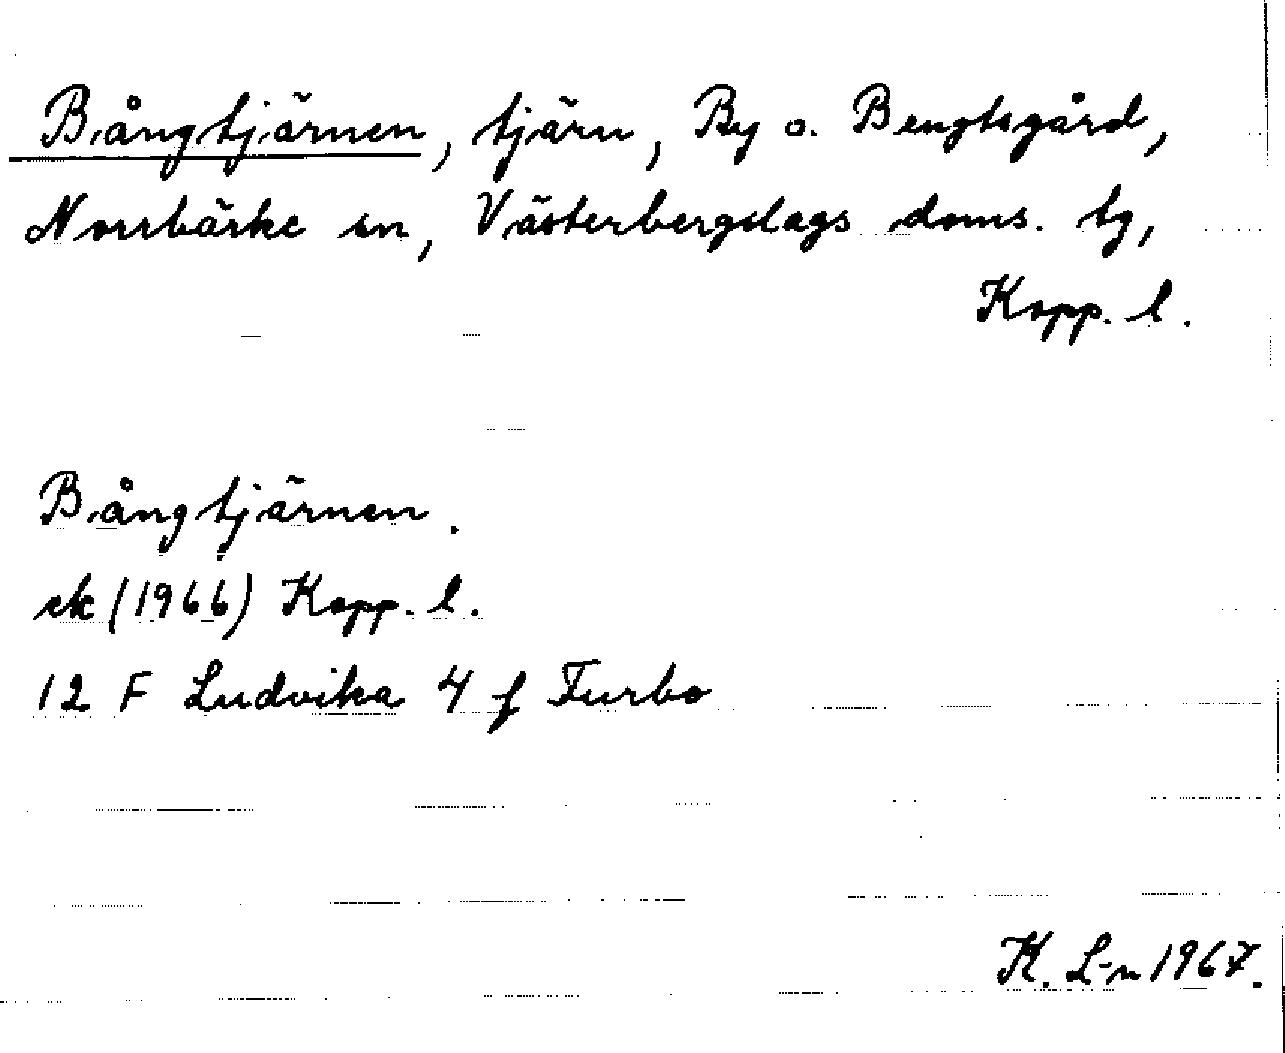 Bångtjärnen, tjärn, By o. Bengtsgård,
Norrbärke sn, Västerbergslags doms. tg,
Kopp. l.
Bångtjärnen.
ek (1966) Kopp. l.
12 F Ludvika 4 f Turbo
K. L-n 1967.